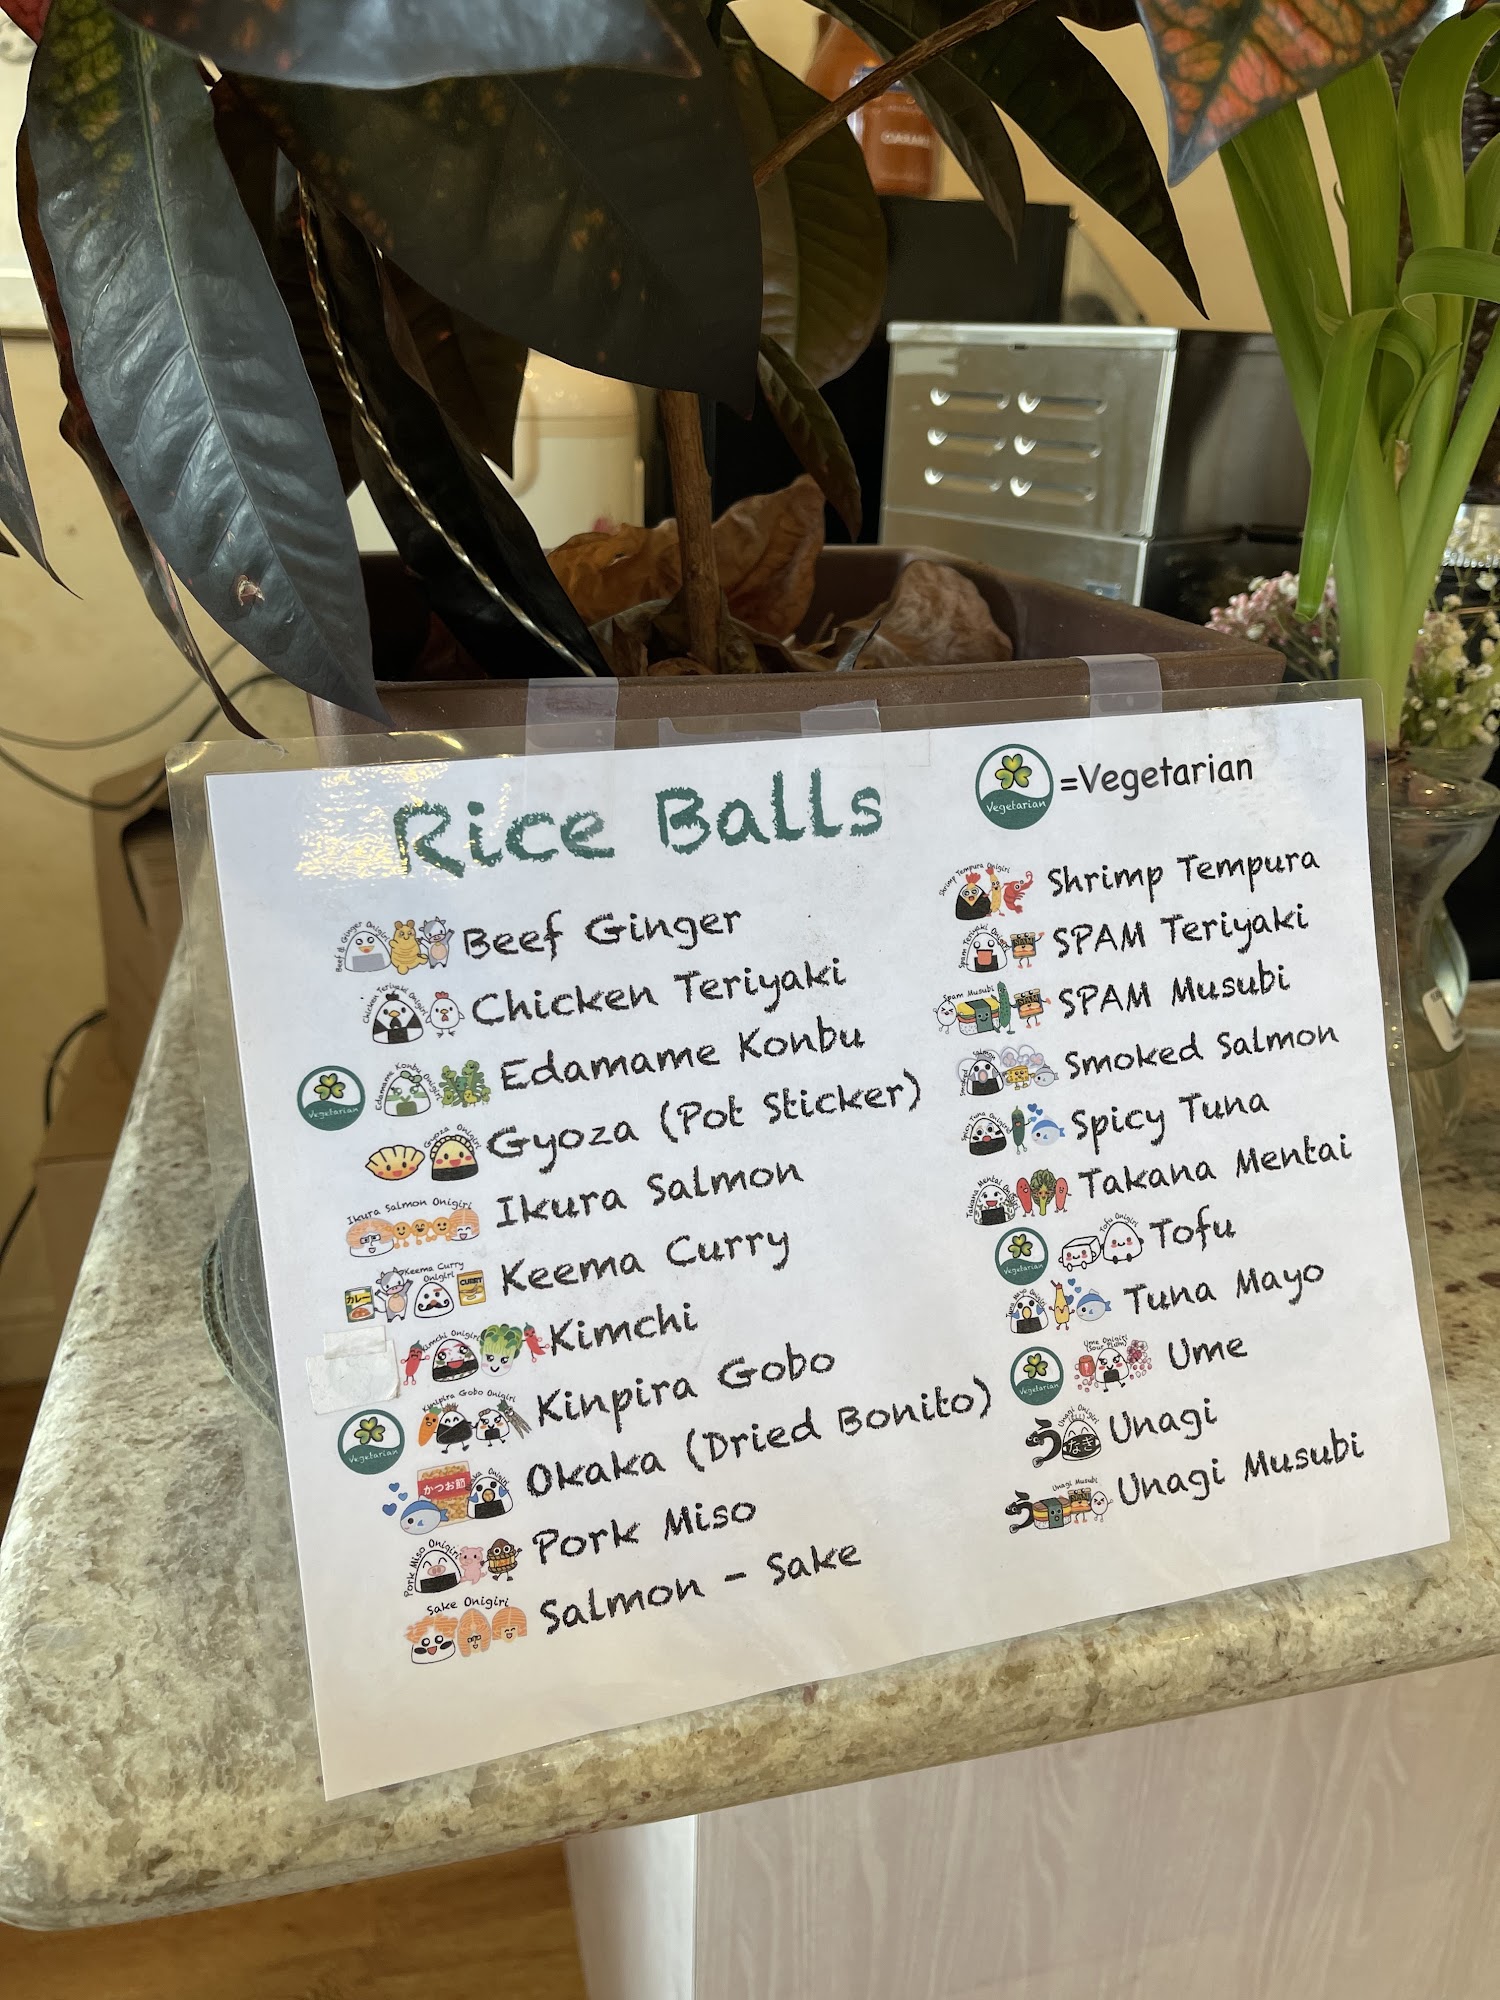 Rice Balls
Vegetarian
=Vegetarian
Beef Ginger Onigiri
Beef Ginger
Chicken Teriyaki Onigiri
Chicken Teriyaki
Vegetarian
Edamame Konbu Onigiri
Edamame Konbu
Gyoza Onigiri
Gyoza (Pot Sticker)
Ikura Salmon Onigiri
Ikura Salmon
カレー
Keema Curry
Onigiri
CURRY
Keema Curry
Kimchi Onigiri
Kimchi
Vegetarian
Kinpira Gobo Onigiri
Kinpira Gobo
かつお節
Onigiri
Okaka (Dried Bonito)
Pork Miso Onigiri
Pork Miso
Sake Onigiri
Salmon - Sake
Shrimp Tempura Onigiri
Shrimp Tempura
Spam Teriyaki Onigiri
SPAM Teriyaki
Spam Musubi
SPAM Musubi
Smoked Salmon
Smoked Salmon
Spicy Tuna Onigiri
Spicy Tuna
Takana Mentai Onigiri
Takana Mentai
Vegetarian
Tofu Onigiri
Tofu
Tuna Mayo Onigiri
Tuna Mayo
Vegetarian
Ume Onigiri
(Sour Plum)
Ume
う
Unagi Onigiri
うなぎ
Unagi
う
Unagi Musubi
Unagi Musubi